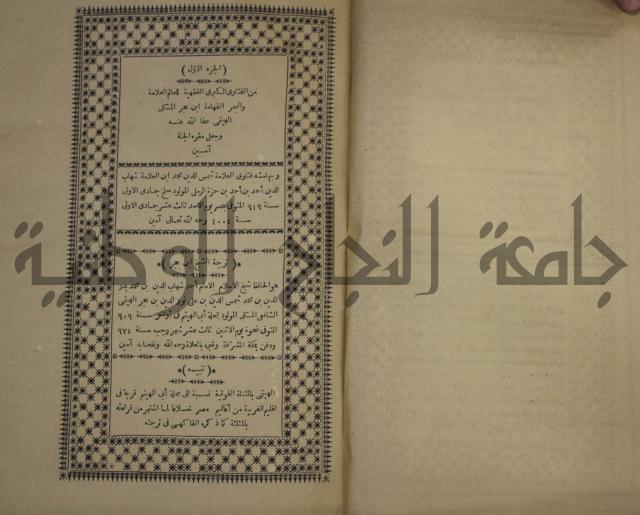 ( الجزء الاول )
من الفتاوى الكبرى الفقهية للعالم العلامة
والبحر الفهامة ابن حجر المكى
الهيتمى عفا الله عنه
وجعل مقره الجنة
آمـين
وبهامشه فتاوى العلامة شمس الدين محمد ابن العلامة شهاب
الدين أحمد بن أحمد بن حمزة الرملى المولود سلخ جمادى الاولى
سنة ٩١٩ المتوفى بمصر يوم الاحد ثالث عشر جمادى الاولى
سنة ١٠٠٤ رحمه الله تعالى آمين
*( ترجمة الشيخ ابن حجر )*
هو الحافظ شيخ الاسلام الامام أحمد شهاب الدين بن محمد بدر
الدين بن محمد شمس الدين بن على نور الدين بن حجر الهيتمى
الشافعى المكى المولود بمحلة أبى الهيتم فى سنة ٩٠٩
المتوفى ضحوة يوم الاثنين ثالث عشر شهر رجب سنة ٩٧٤
ودفن بمكة المشرفة وقبره بالمعلاة رحمه الله ونفعنا به آمين
*( تنبيه )*
الهيتمى بالمثناة الفوقية نسبة الى محلة أبى الهيتم قرية فى
اقليم الغربية من أقاليم مصر خلافا لما اشتهر من قراءته
بالمثلثة كما ذكره الفاكهى فى ترجمته
جامعة النجاح الوطنية